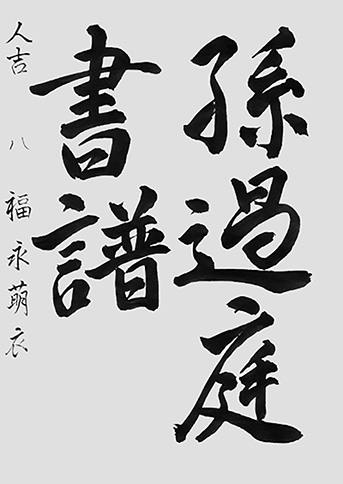 孫過庭
書譜
人吉 八 福永萌衣